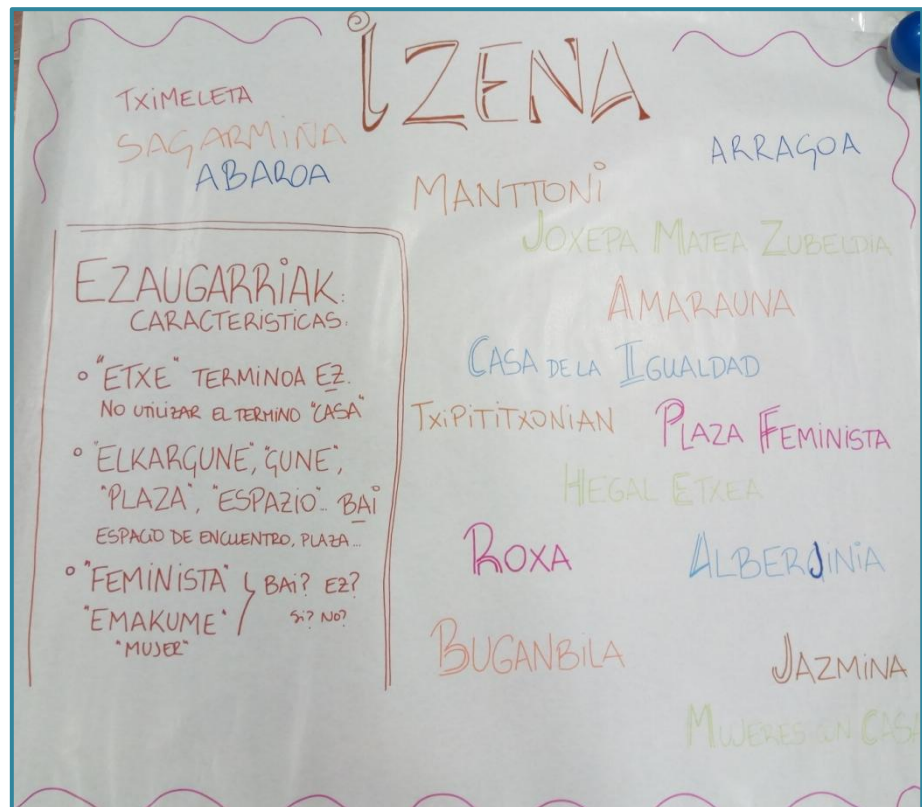 IZENA
TXIMELETA
SAGARMIÑA
ABAROA
ARRAGOA
MANTTONI
JOXEPA MATEA ZUBELDIA
AMARAUNA
CASA DE LA IGUALDAD
TXIPITITXONIAN
PLAZA FEMINISTA
HEGAL ETXEA
ROXA
ALBERJINIA
BUGANBILA
JAZMINA
MUJERES UN CASA
EZAUGARRIAK:
CARACTERISTICAS.
° "ETXE" TERMINOA EZ.
NO UTILIZAR EL TERMINO "CASA"
° "ELKARGUNE", "GUNE",
"PLAZA", "ESPAZIO".. BAI
ESPACIO DE ENCUENTRO, PLAZA...
° "FEMINISTA" BAI? EZ?
"EMAKUME" SI? NO?
"MUJER"